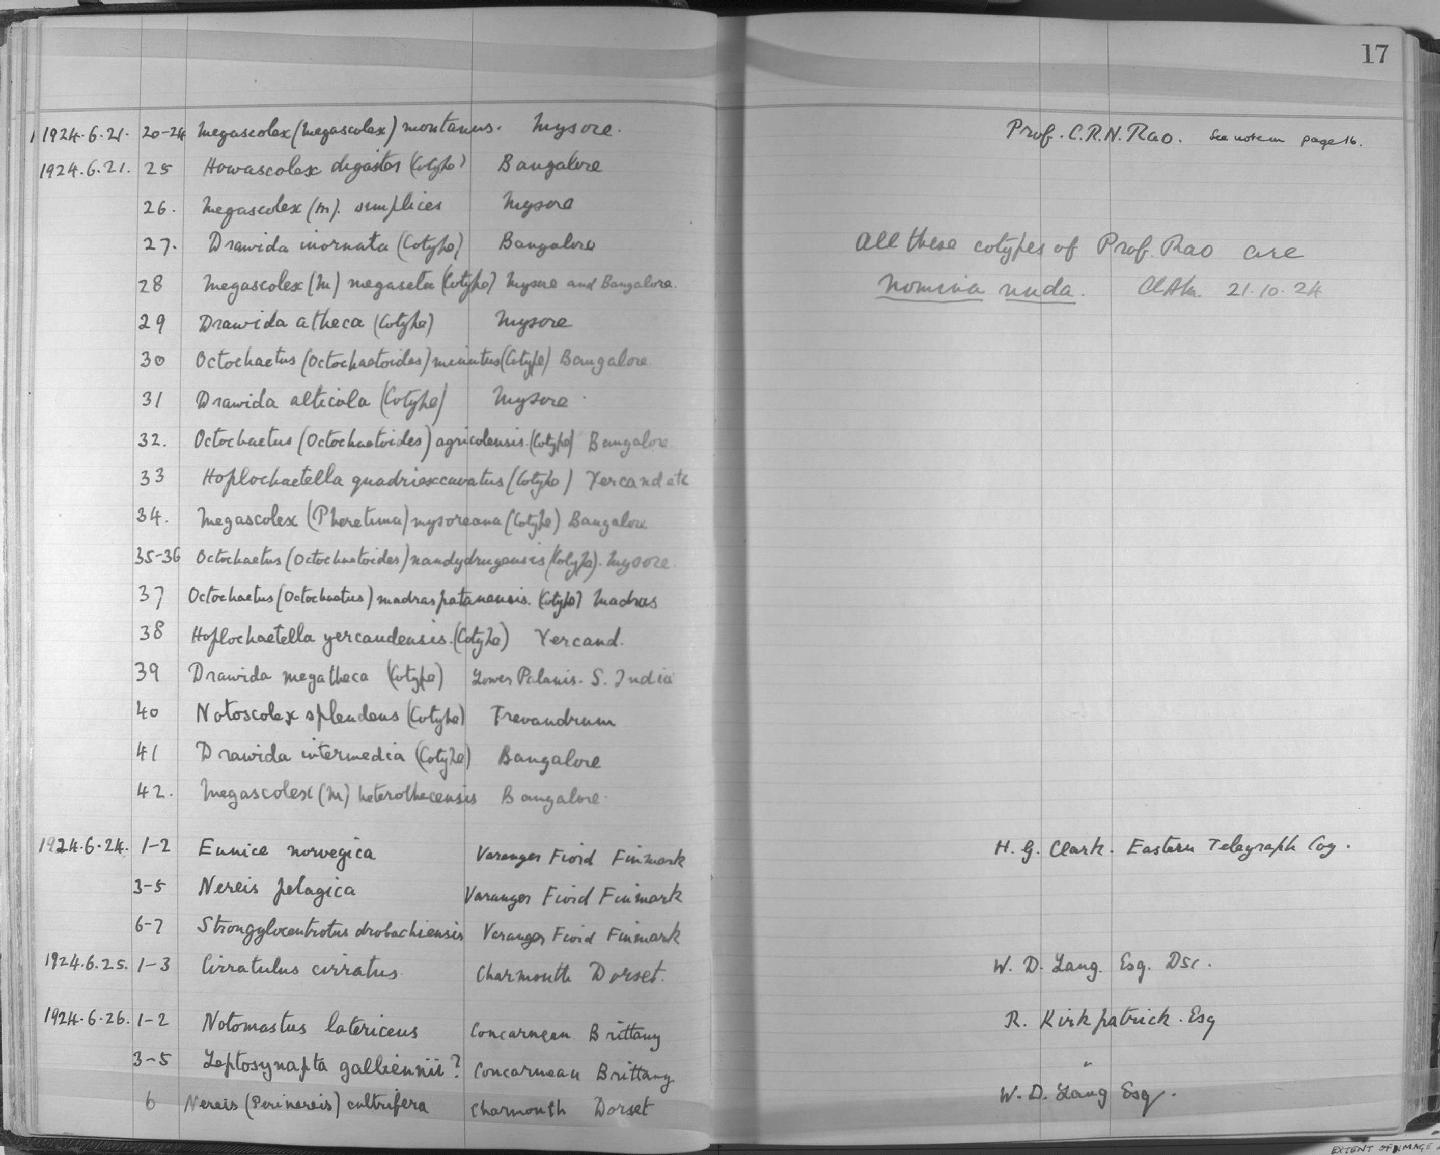 17
1924.6.21. 20-24 Megascolex (Megascolex) montanus. Mysore. Prof. C.R.N. Rao. See note on page 16.
1924.6.21. 25 Howascolex digaster (Cotype) Bangalore
26. Megascolex (M). simplices Mysore
27. Drawida inornata (Cotype) Bangalore All these cotypes of Prof. Rao are
28 Megascolex (M) megaseta (Cotype) Mysore and Bangalore. nomina nuda. 21.10.24
29 Drawida atheca (Cotype) Mysore
30 Octochaetus (Octochaetoides) minutus (Cotype) Bangalore
31 Drawida alticola (Cotype) Mysore
32. Octochaetus (Octochaetoides) agricolensis. (Cotype) Bangalore
33 Hoplochaetella quadriexcavatus (Cotype) Yercand etc
34. Megascolex (Pheretima) mysoreana (Cotype) Bangalore
35-36 Octochaetus (Octochaetoides) nandydrugensis (Cotype). Mysore.
37 Octochaetus (Octochaetus) madraspatanensis. (Cotype) Madras
38 Hoplochaetella yercaudensis. (Cotype) Yercand.
39 Drawida megatheca (Cotype) Lower Palanis. S. India
40 Notoscolex splendens (Cotype) Trevandrum
41 Drawida intermedia (Cotype) Bangalore
42. Megascolex (M) heterothecensis Bangalore.
1924.6.24. 1-2 Eunice norvegica Varanger Fiord Finmark H. G. Clark. Eastern Telegraph Coy.
3-5 Nereis pelagica Varanger Fiord Finmark
6-7 Strongylocentrotus drobachiensis Varanger Fiord Finmark
1924.6.25. 1-3 Cirratulus cirratus Charmouth Dorset. W. D. Lang. Esq. DSc.
1924.6.26. 1-2 Notomastus latericeus Concarneau Brittany R. Kirkpatrick. Esq
3-5 Leptosynapta galliennii? Concarneau Brittany "
6 Nereis (Perinereis) cultrifera Charmouth Dorset W. D. Lang Esq.
EXTENT OF IMAGE